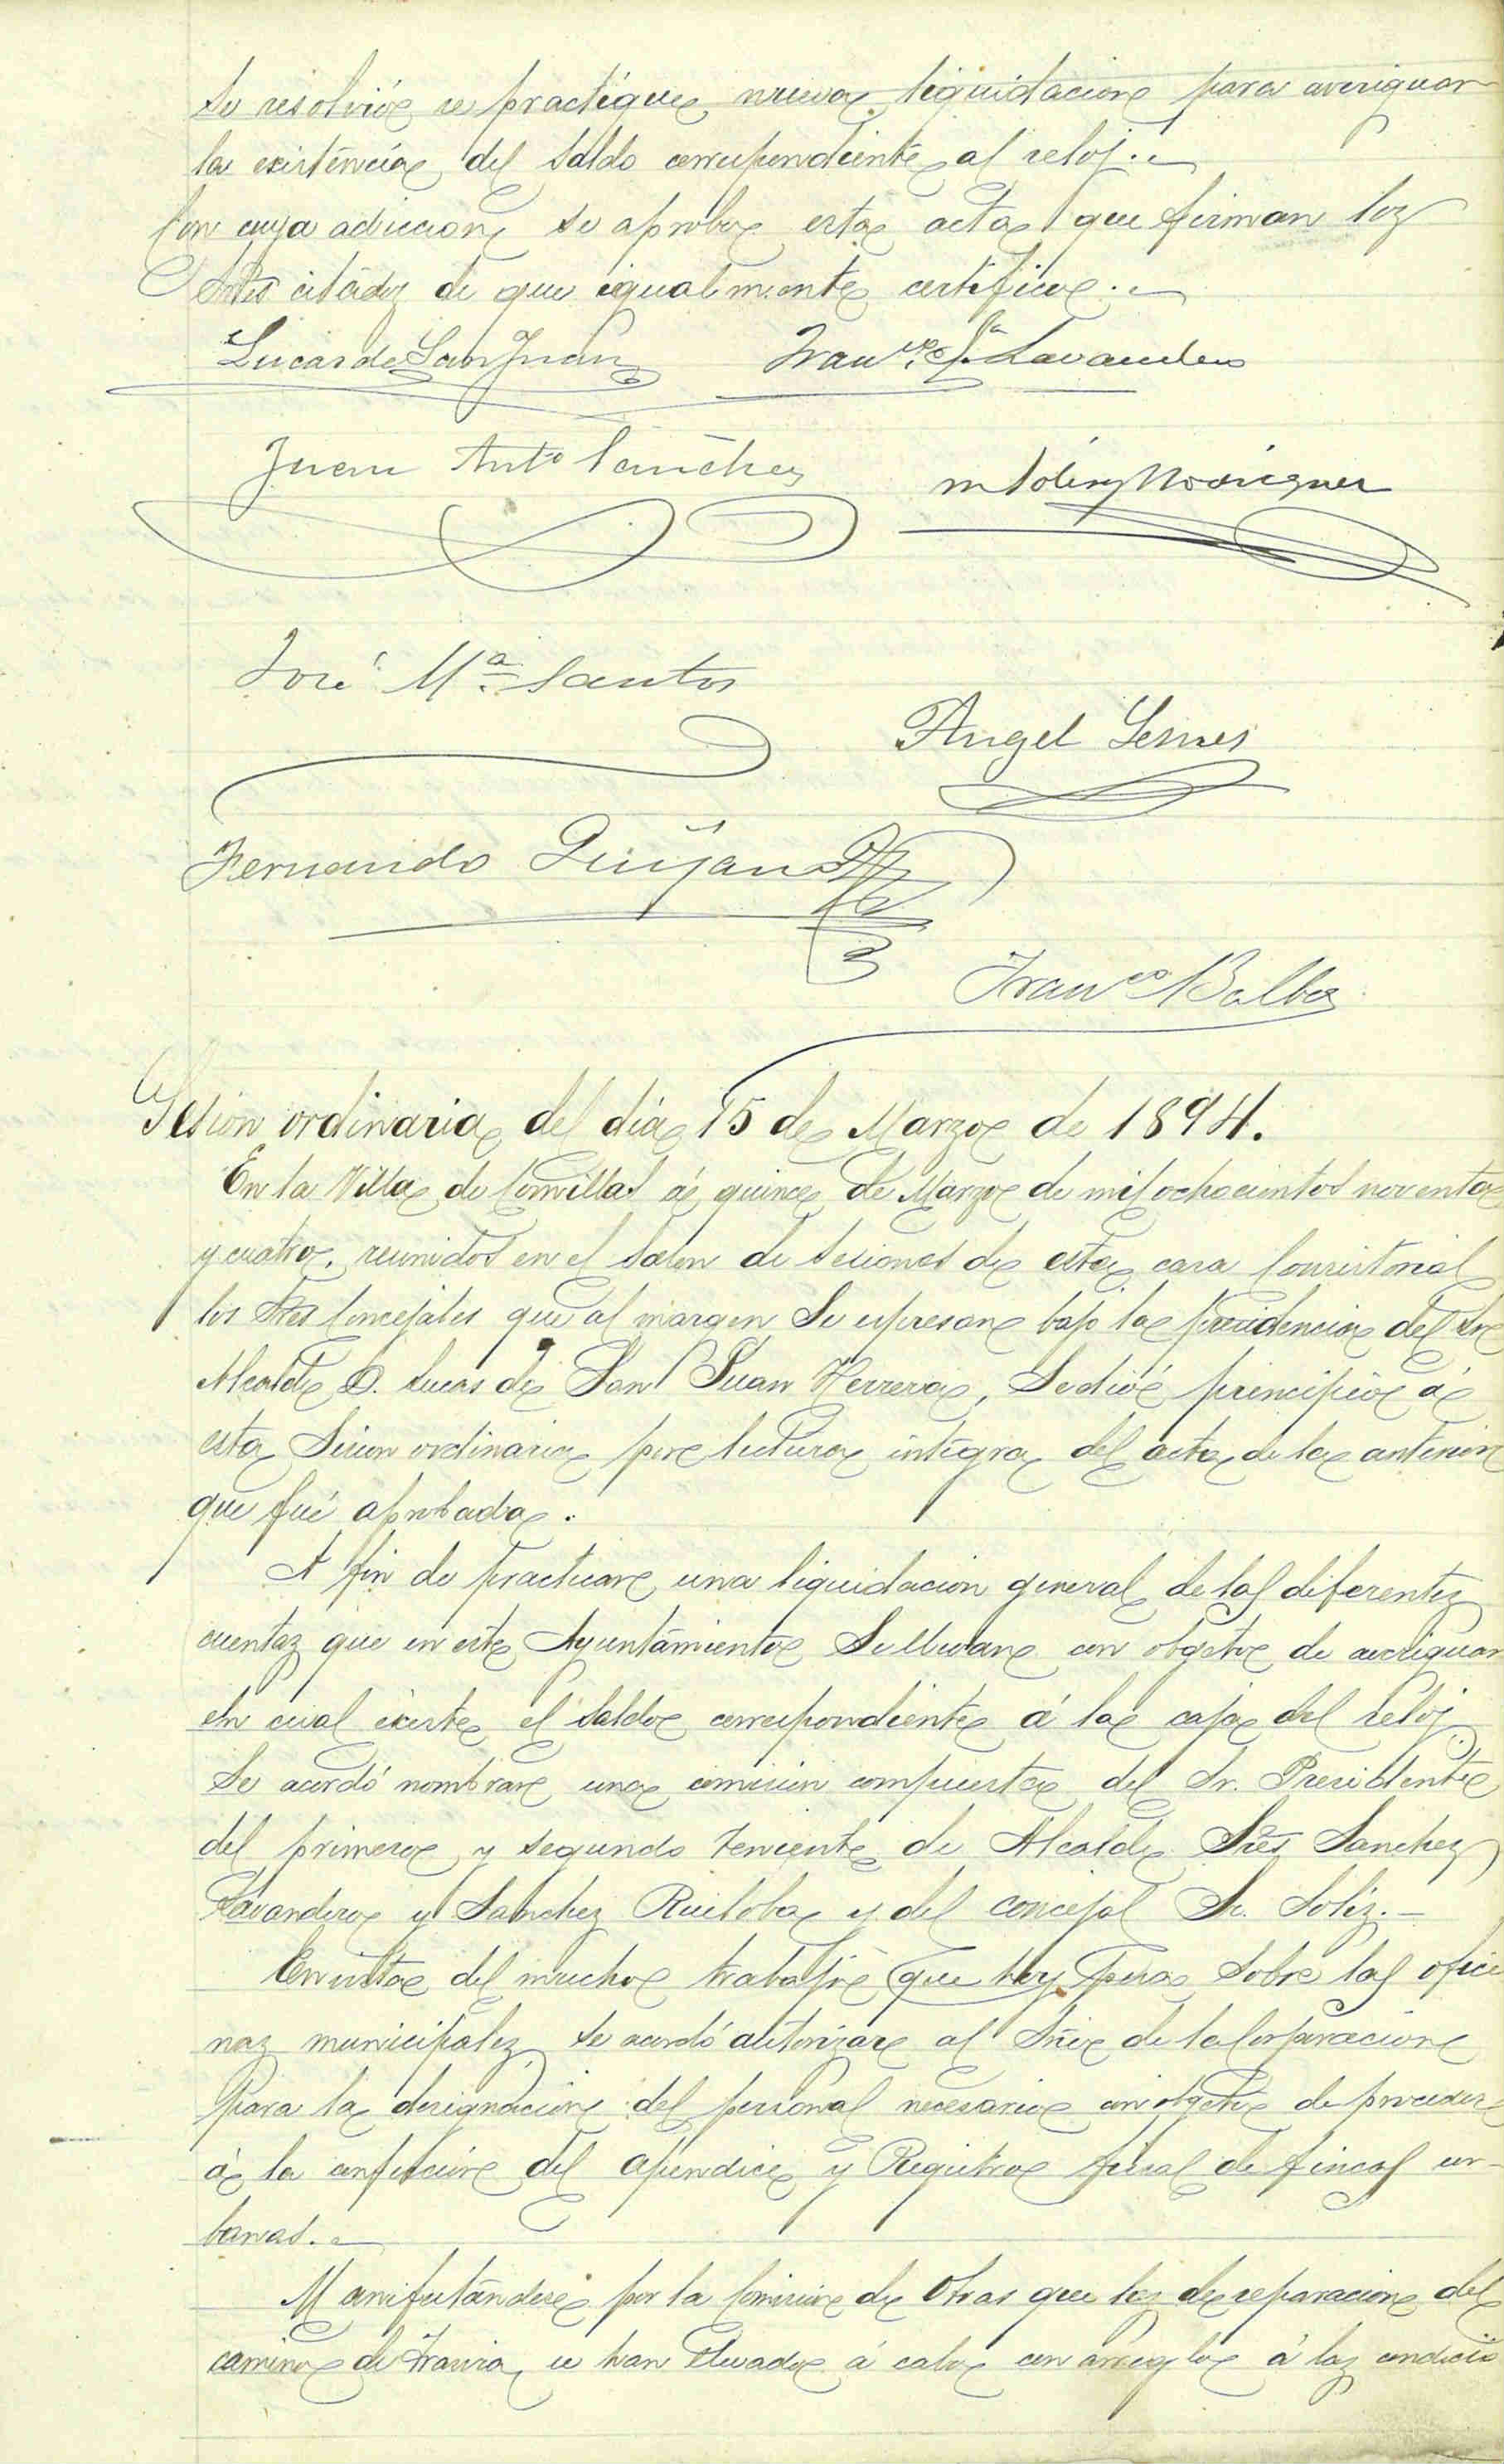 se resolvió se practique nueva liquidacion para averiguar
la existéncia del saldo correspondiente al reloj.
Con cuya adiccion, se aprobó esta acta que firman los
Sres citados de que igualmente certifico.
Lucas de San Juan Franco. S. Lavandero
Juan Anto Sanchez m Soliz Rodriguez
José Ma. Santos
Angel Lemes
Fernando Quijano
Franco Balbas
Sesion ordinaria del dia 15 de Marzo de 1894.
En la Villa de Comillas á quince de Marzo de mil ochocientos noventa
y cuatro, reunidos en el Salon de sesiones de esta casa Consistorial
los Sres Concejales que al margen se espresan bajo la presidencia del Sr
Alcalde D. Lucas de San Juan Herrera, se dió principio á
esta sesion ordinaria por lectura integra del acta de la anterior
que fué aprobada.
A fin de practicar una liquidacion general de las diferentes
cuentas que en este Ayuntamiento se llevan con objeto de averiguar
en cual existe el saldo correspondiente á la caja del reloj
Se acordó nombrar una comision compuesta del Sr. Presidente
del primero y segundo teniente de Alcalde Sres Sanchez
Lavandero y Sanchez Ruiloba y del concejal Sr. Soliz.
En vista del mucho trabajo que hoy pesa sobre las ofici
nas municipales se acordó autorizar al Srio de la Corporacion
para la designacion del personal necesario con objeto de proceder
á la confeccion del apendice y Registro fiscal de fincas ur-
banas.
Manifestándose por la Comision de Obras que las de reparacion del
camino de Travia se han llevado á cabo con arreglo á las condicio